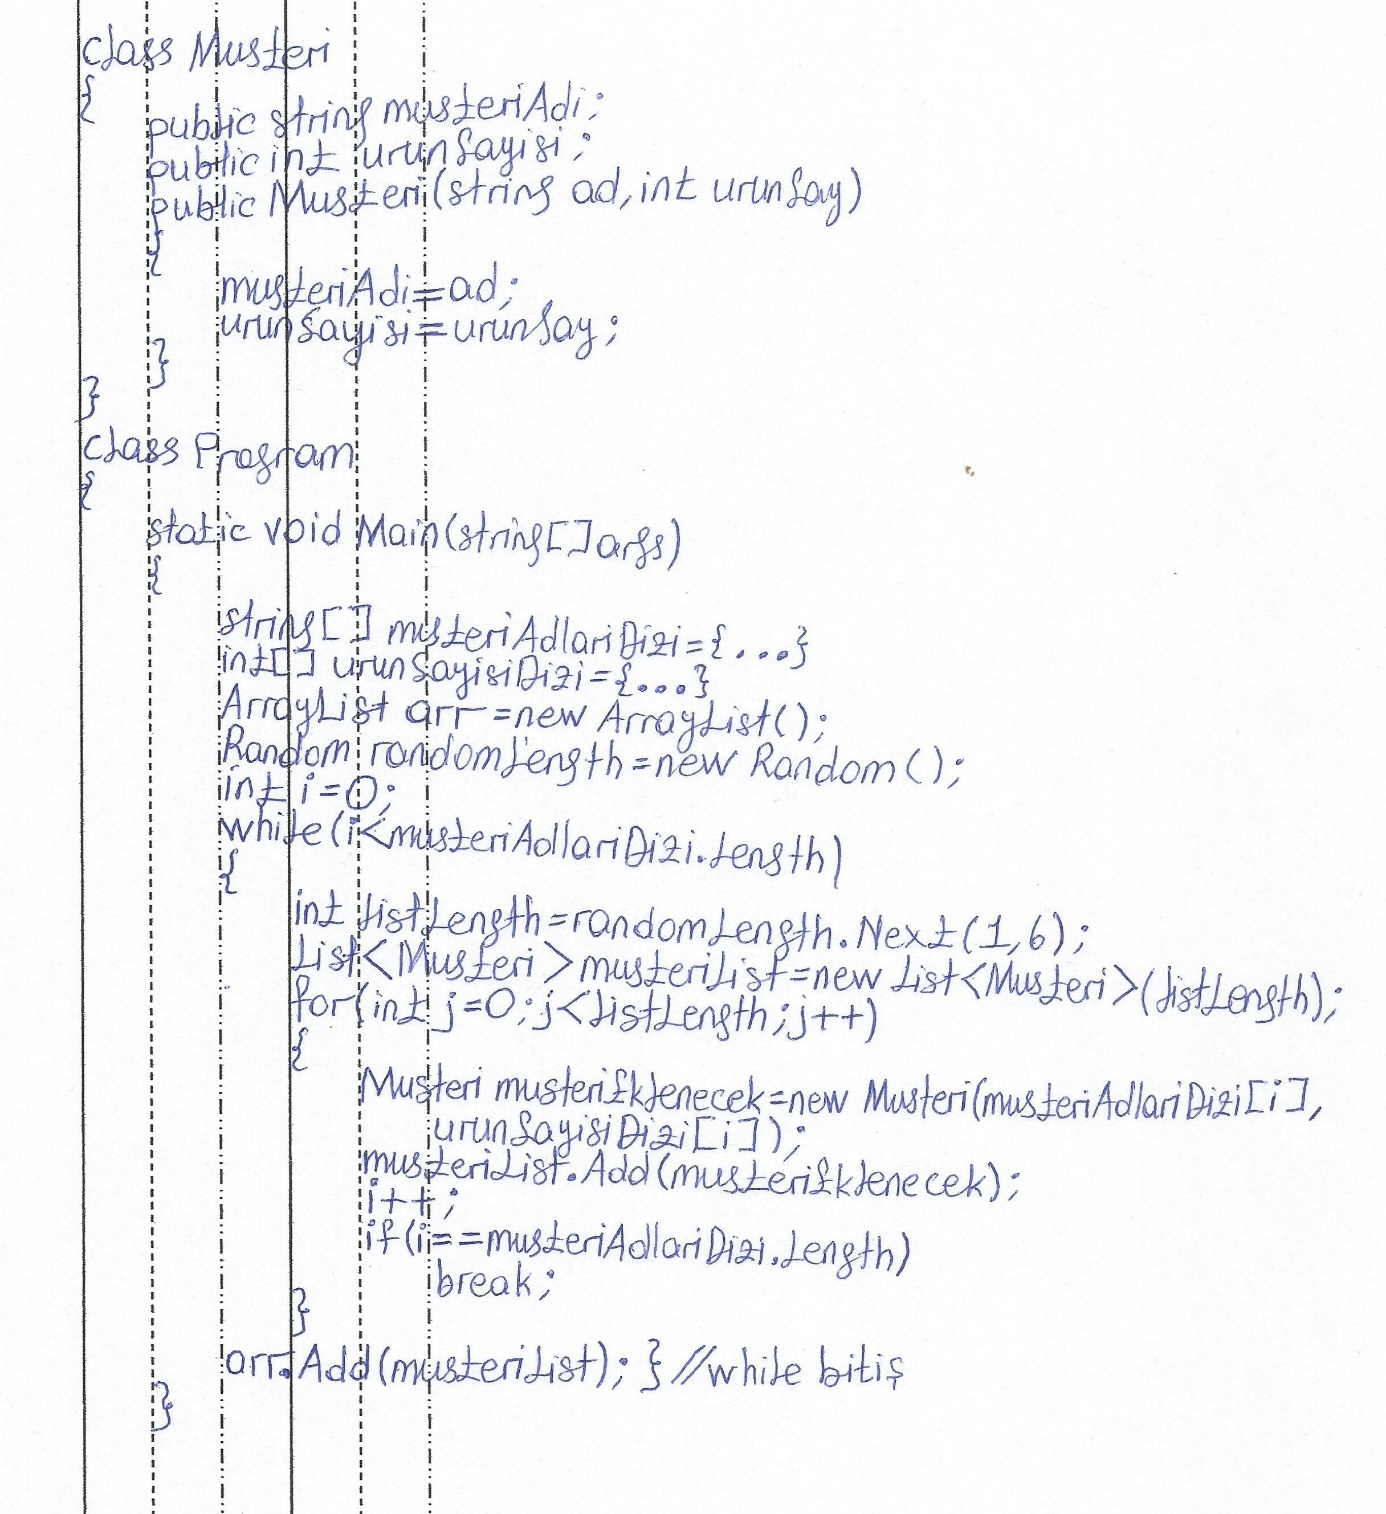 class Musteri
{
public string musteriAdi;
public int urunSayisi;
public Musteri(string ad,int urunSay)
{
musteriAdi=ad;
urunSayisi=urunSay;
}
}
class Program
{
static void Main(string[]args)
{
string[] musteriAdlariDizi={...}
int[] urunSayisiDizi={...}
ArrayList arr=new ArrayList();
Random randomLength=new Random();
int i=0;
while(i<musteriAdlariDizi.Length)
{
int listLength=randomLength.Next(1,6);
List<Musteri>musteriList=new List<Musteri>(listLength);
for(int j=0;j<listLength;j++)
{
Musteri musteriEklenecek=new Musteri(musteriAdlariDizi[i],
urunSayisiDizi[i]);
musteriList.Add(musteriEklenecek);
i++;
if(i==musteriAdlariDizi.Length)
break;
}
arr.Add(musteriList); } //while bitiş
}